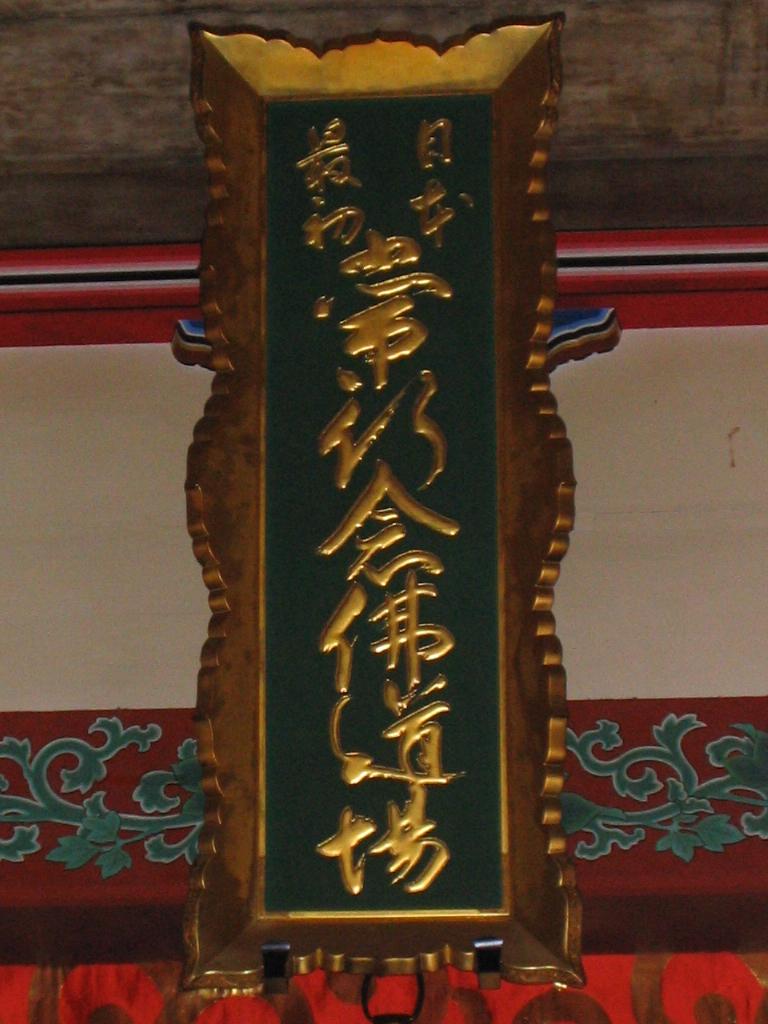 日本
最初
常行念佛道場